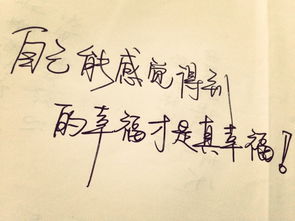 自己能感觉得到
的幸福才是真幸福!